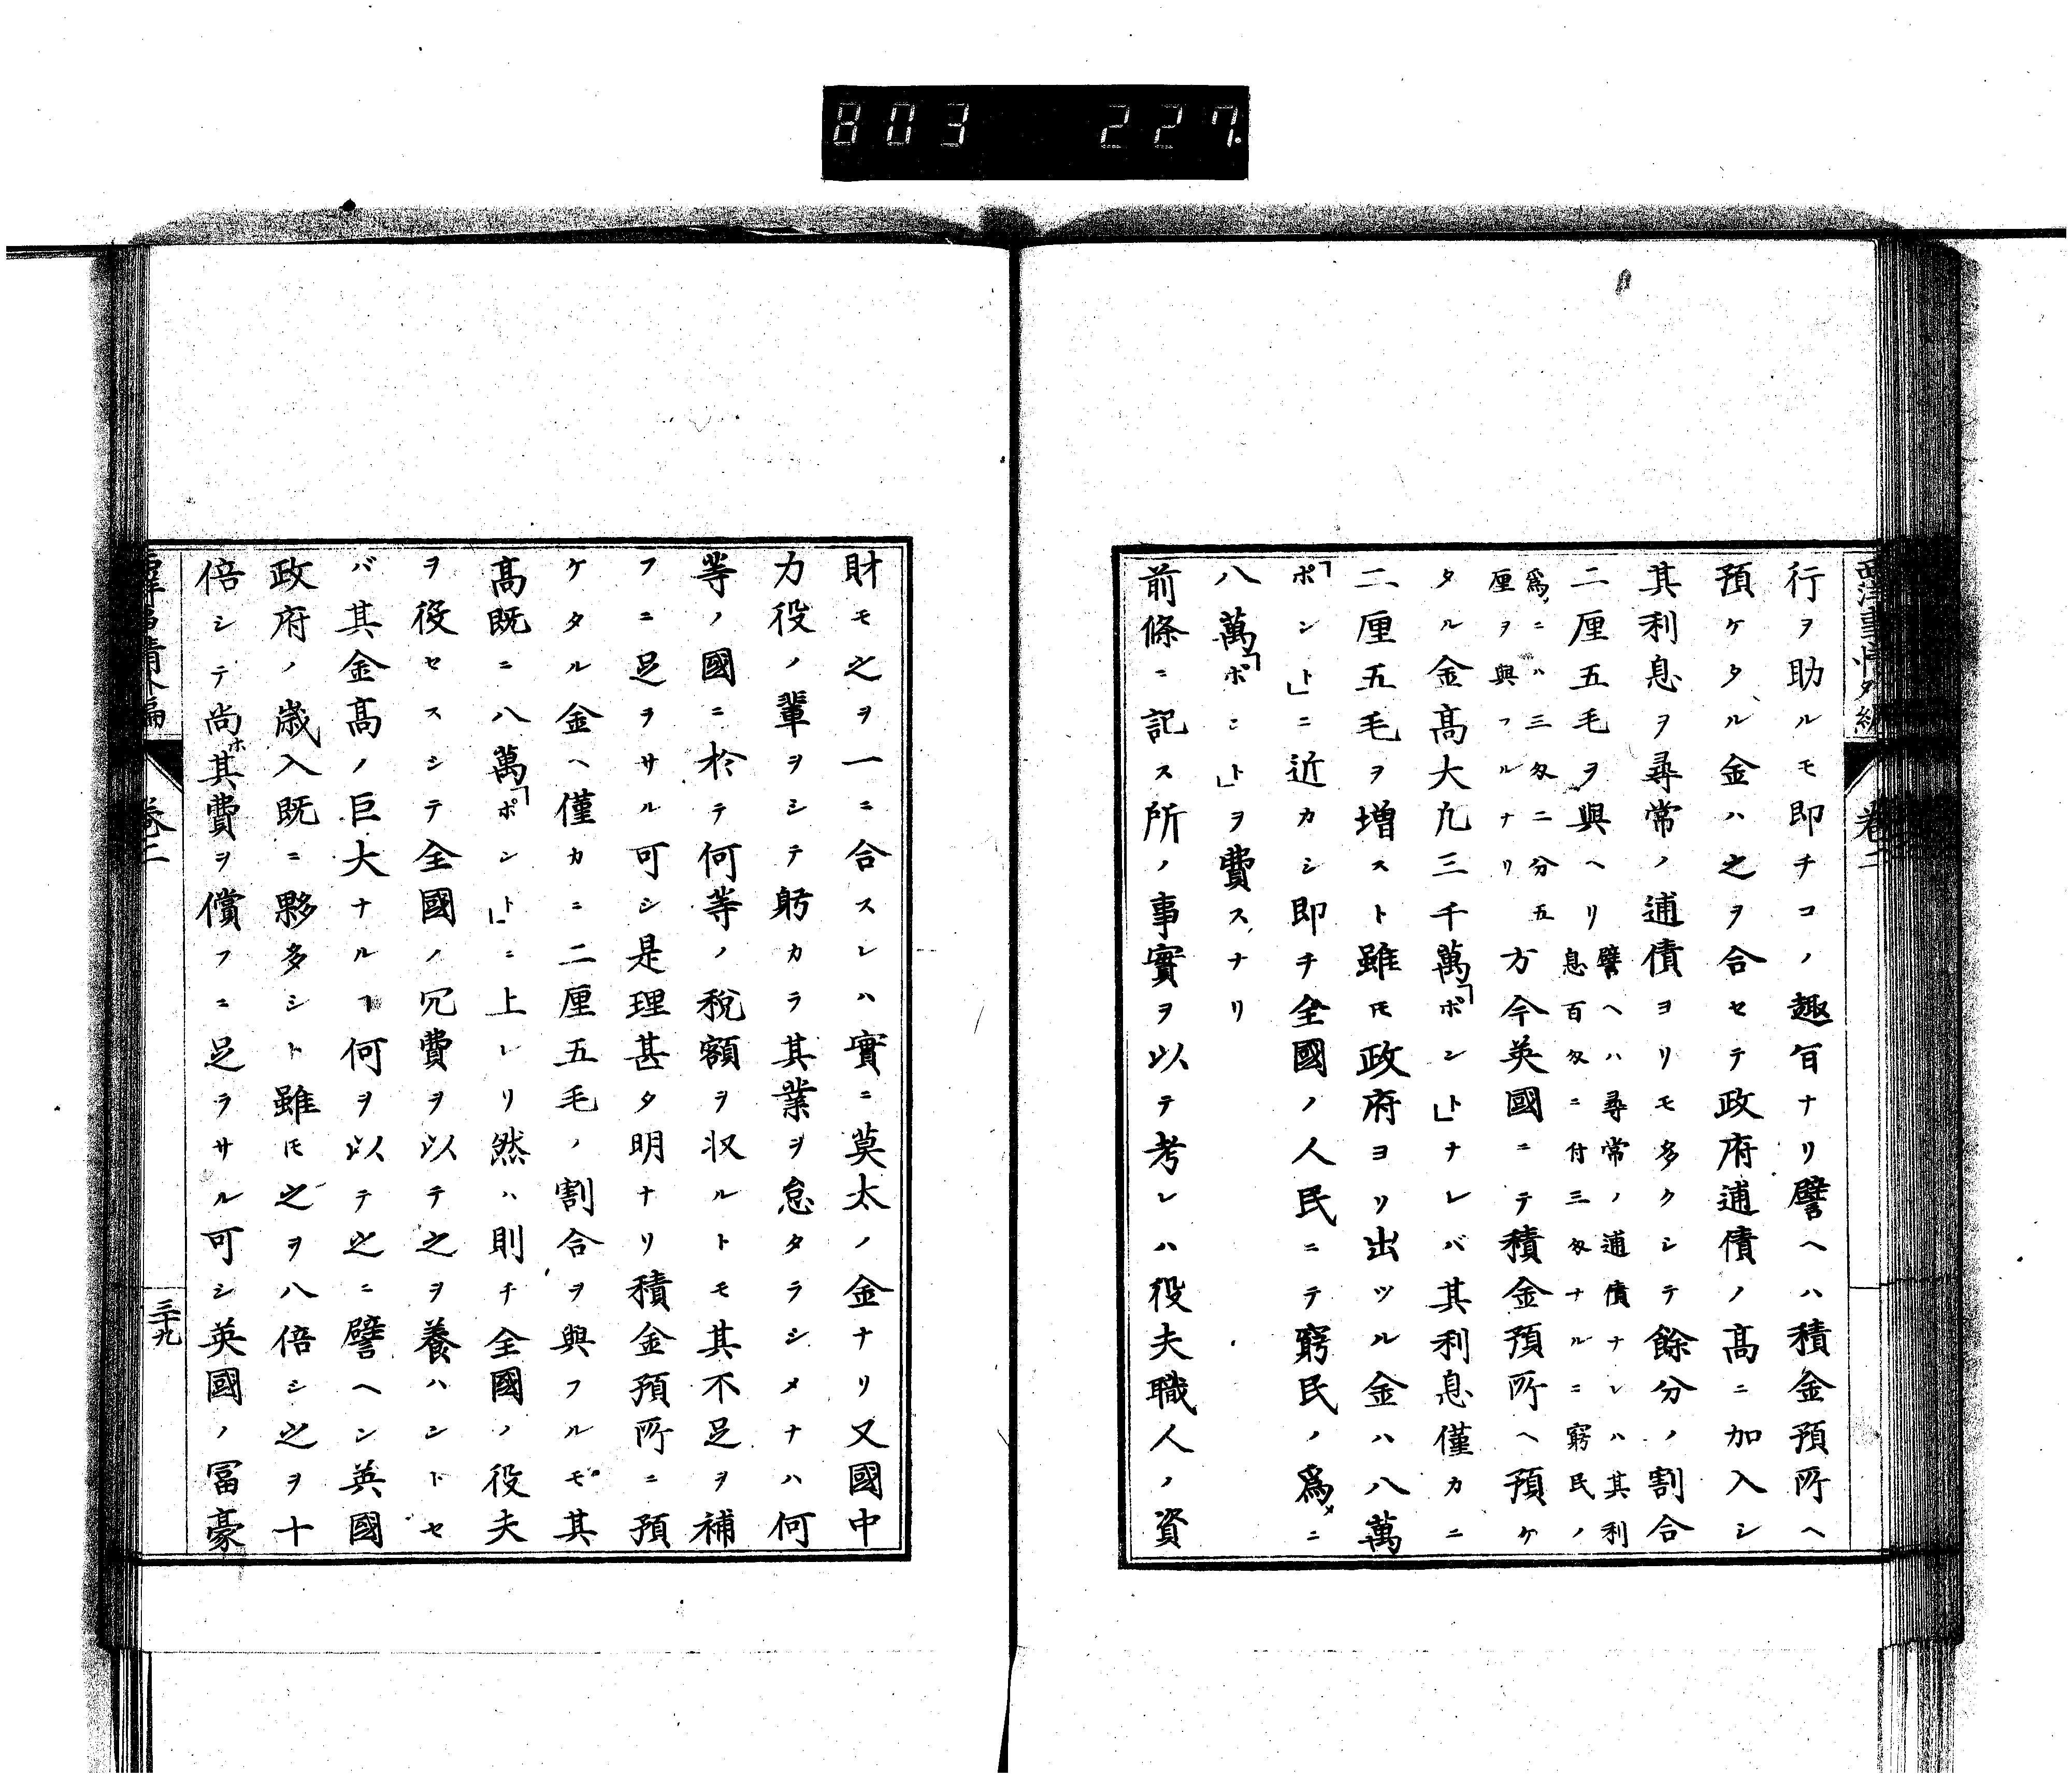 803 227
西洋事情外編 卷二
行ヲ助ルモ即チコノ趣旨ナリ譬ヘハ積金預所ヘ
預ケタル金ハ之ヲ合セテ政府逋債ノ高ニ加入シ
其利息ヲ尋常ノ逋債ヨリモ多クシテ餘分ノ割合
二厘五毛ヲ與ヘリ譬ヘハ尋常ノ逋債ナレハ其利
息百匁ニ付三匁ナルニ窮民ノ
爲ニハ三匁二分五
厘ヲ與フルナリ方今英國ニテ積金預所ヘ預ケ
タル金高大凡三千萬「ポンド」ナレバ其利息僅カニ
二厘五毛ヲ増スト雖モ政府ヨリ出ツル金ハ八萬
「ポンド」ニ近カシ即チ全國ノ人民ニテ窮民ノ爲メニ
八萬「ポンド」ヲ費スナリ
前條ニ記ス所ノ事實ヲ以テ考レハ役夫職人ノ資
財モ之ヲ一ニ合スレハ實ニ莫太ノ金ナリ又國中
力役ノ輩ヲシテ躬カラ其業ヲ怠タラシメナハ何
等ノ國ニ於テ何等ノ稅額ヲ収ルトモ其不足ヲ補
フニ足ラサル可シ是理甚タ明ナリ積金預所ニ預
ケタル金ヘ僅カニ二厘五毛ノ割合ヲ與フルモ其
高既ニ八萬「ポンド」ニ上レリ然ハ則チ全國ノ役夫
ヲ役セスシテ全國ノ冗費ヲ以テ之ヲ養ハントセ
バ其金高ノ巨大ナルヿ何ヲ以テ之ニ譬ヘン英國
政府ノ歳入既ニ夥多シト雖モ之ヲ八倍シ之ヲ十
倍シテ尚ホ其費ヲ償フニ足ラサル可シ英國ノ冨豪
西洋事情外編 卷二 三十九